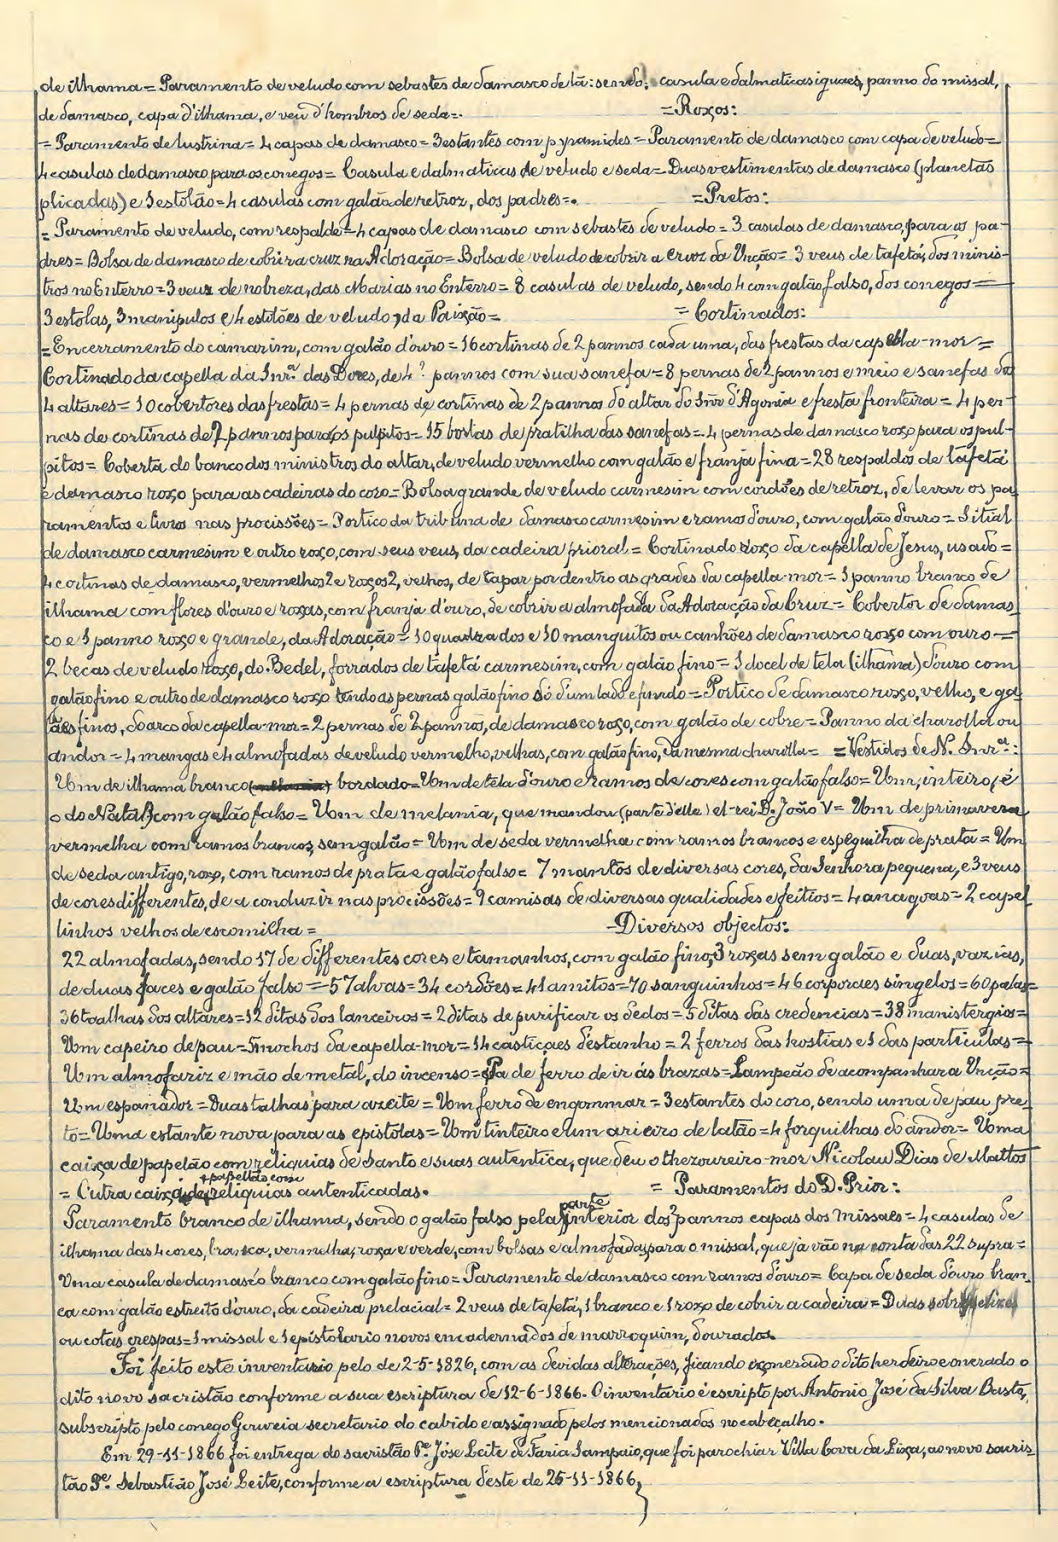 de ilhama = Paramento de veludo com sebastes de damasco de lã: sendo: casula e dalmaticas iguaes, panno do missal,
de damasco, capa d'ilhama, e veu d'hombros de seda =. = Roxos:
= Paramento de lustrina = 4 capas de damasco = 3 estantes com pyramides = Paramento de damasco com capa de veludo =
4 casulas de damasco para os conegos = Casula e dalmaticas de veludo e seda = Duas vestimentas de damasco (planetas
plicadas) e 1 estolão = 4 casulas com galão de retroz, dos padres =. = Pretos:
= Paramento de veludo, com respalde = 4 capas de damasco com sebastes de veludo = 3 casulas de damasco, para os pa-
dres = Bolsa de damasco de cobrir a cruz na Adoração = Bolsa de veludo de cobrir a cruz da Uncção = 3 veus de tafetá, dos minis-
tros no Enterro = 3 veus de nobreza, das Marias no Enterro = 8 casulas de veludo, sendo 4 com galão falso, dos conegos =
3 estolas, 3 manipulos e 4 estolões de veludo, da Paixão = = Cortinados:
= Encerramento do camarim, com galão d'ouro = 16 cortinas de 2 pannos cada uma, das frestas da capella-mor =
Cortinado da capella da Snrª das Dores, de 4 pannos com sua sanefa = 8 pernas de 2 pannos e meio e sanefas de
4 altares = 10 cobertores das frestas = 4 pernas de cortinas de 2 pannos do altar do Snr d'Agonia e fresta fronteira = 4 per-
nas de cortinas de 2 pannos para os pulpitos = 15 borlas de pratilha das sanefas = 4 pernas de damasco roxo para os pul-
pitos = Coberta do banco dos ministros do altar, de veludo vermelho com galão e franja fina = 28 respaldos de tafetá
e damasco roxo para as cadeiras do coro = Bolsa grande de veludo carmesim com cordões de retroz, de levar os pa-
ramentos e livros nas procissões = Portico da tribuna de damasco carmesim e ramos d'ouro, com galão d'ouro = Sitial
de damasco carmesim e outro roxo, com seus veus, da cadeira prioral = Cortinado roxo da capella de Jesus, usado =
4 cortinas de damasco, vermelhos 2 e roxos 2, velhos, de tapar por dentro as grades da capella-mor = 1 panno branco de
ilhama com flores d'ouro e roxas, com franja d'ouro, de cobrir a almofada da Adoração da Cruz = Cobertor de damas-
co e 1 panno roxo e grande, da Adoração = 10 quadrados e 10 manguitos ou canhões de damasco roxo com ouro =
2 becas de veludo roxo, do Bedel, forrados de tafetá carmesim, com galão fino = 1 docel de tela (ilhama) d'ouro com
galão fino e outro de damasco roxo tendo as pernas galão fino só d'um lado e fundo = Portico de damasco roxo, velho, e ga-
lões finos, do arco da capella-mor = 2 pernas de 2 pannos, de damasco roxo, com galão de cobre = Panno da charolla ou
andor = 4 mangas e 4 almofadas de veludo vermelho, velhas, com galão fino, da mesma charolla = = Vestidos de N. Snrª:
Um de ilhama branco bordado = Um de tela d'ouro e ramos de cores com galão falso = Um, inteiro, (é
o do Natal) com galão falso = Um de melania, que mandou (parte d'elle) el-rei D. João V = Um de primavera
vermelha com ramos brancos, sem galão = Um de seda vermelha com ramos brancos e espeguilha de prata = Um
de seda antigo, roxo, com ramos de prata e galão falso = 7 mantos de diversas cores, da Senhora pequena, e 3 veus
de cores differentes, de a conduzir nas procissões = 9 camisas de diversas qualidades e feitios = 4 anagoas = 2 capel-
linhos velhos de escomilha = = Diversos objectos:
22 almofadas, sendo 17 de differentes cores e tamanhos, com galão fino, 3 roxas sem galão e duas, vazias,
de duas faces e galão falso = 57 alvas = 34 cordões = 41 amitos = 70 sanguinhos = 46 corporaes singelos = 60 palas =
36 toalhas dos altares = 12 ditas dos lanceiros = 2 ditas de purificar os dedos = 5 ditas das credencias = 38 manistergios =
Um capeiro de pau = 5 mochos da capella-mor = 14 castiçaes d'estanho = 2 ferros das hostias e 1 das particulas =
Um almofariz e mão de metal, do incenso = Pá de ferro de ir ás brazas = Lampeão de acompanhar a Uncção =
Um espanador = Duas talhas para azeite = Um ferro de engommar = 3 estantes do coro, sendo uma de pau pre-
to = Uma estante nova para as epistolas = Um tinteiro e um arieiro de latão = 4 forquilhas do andor = Uma
caixa de papelão com reliquias de Santo e suas autentica, que deu o thezoureiro-mor Nicolau Dias de Mattos
= Outra caixa de papelão com reliquias autenticadas. = Paramentos do D. Prior:
Paramento branco de ilhama, sendo o galão falso pela parte interior dos 2 pannos capas dos missaes = 4 casulas de
ilhama das 4 cores, branca, vermelha, roxa e verde, com bolsas e almofadas, para o missal, que já vão na conta das 22 supra =
Uma casula de damasco branco com galão fino = Paramento de damasco com ramos d'ouro = Capa de seda d'ouro bran-
ca com galão estreito d'ouro, da cadeira prelacial = 2 veus de tafetá, 1 branco e 1 roxo de cobrir a cadeira = Duas sobrepelizes
ou cotas crespas = 1 missal e 1 epistolario novos encadernados de marroquim, dourados.
Foi feito este inventario pelo de 2-5-1826, com as devidas alterações, ficando exonerado o dito herdeiro e onerado o
dito novo sacristão conforme a sua escriptura de 12-6-1866. O inventario é escripto por Antonio José da Silva Basto,
subscripto pelo conego Gouveia secretario do cabido e assignado pelos mencionados no cabeçalho.
Em 29-11-1866 foi entrega do sacristão Pe. José Leite de Faria Sampaio, que foi parochiar Villa Cova da Lixa, ao novo sacris-
tão Pe. Sebastião José Leite, conforme a escriptura d'este de 26-11-1866.